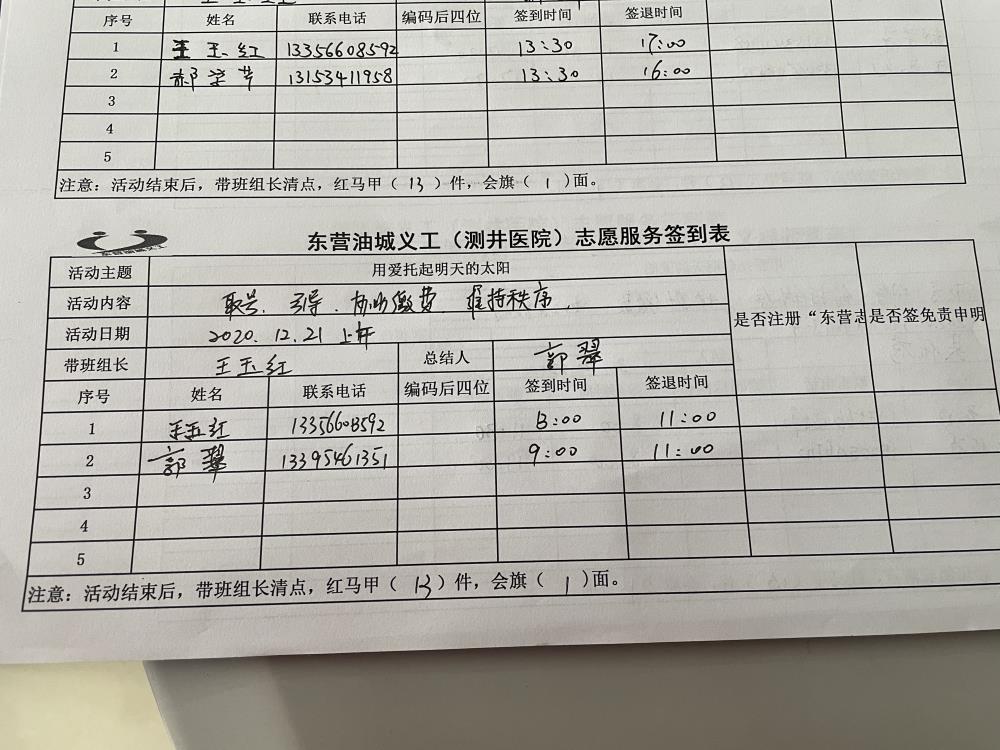 序号 姓名 联系电话 编码后四位 签到时间 签退时间
1 王玉红 13356608592 13:30 17:00
2 郝学芹 13153411958 13:30 16:00
3
4
5
注意：活动结束后，带班组长清点，红马甲（ 13 ）件，会旗（ 1 ）面。
东营油城义工（测井医院）志愿服务签到表
活动主题 用爱托起明天的太阳
活动内容 取号、引导、协助缴费、维持秩序、
是否注册“东营志 是否签免责申明
活动日期 2020.12.21 上午
带班组长 王玉红 总结人 郭翠
序号 姓名 联系电话 编码后四位 签到时间 签退时间
1 王玉红 13356608592 8:00 11:00
2 郭翠 13395461351 9:00 11:00
3
4
5
注意：活动结束后，带班组长清点，红马甲（ 13 ）件，会旗（ 1 ）面。